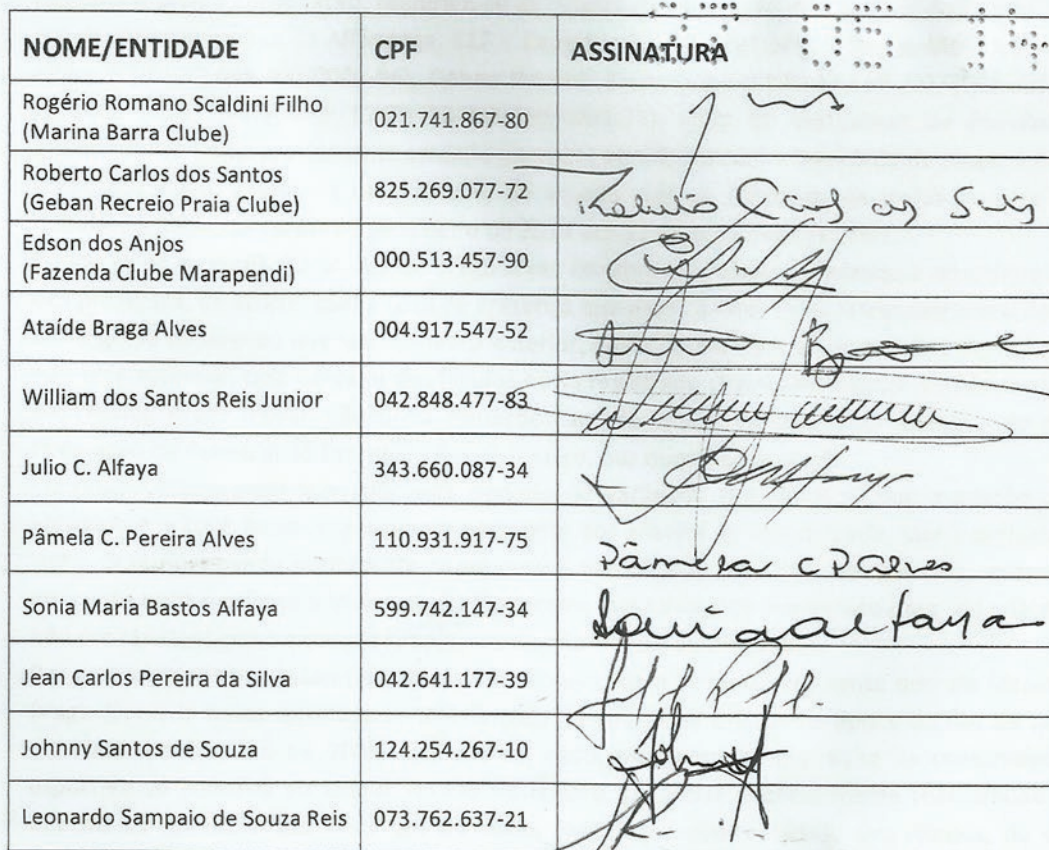 NOME/ENTIDADE CPF ASSINATURA
Rogério Romano Scaldini Filho
(Marina Barra Clube) 021.741.867-80
Roberto Carlos dos Santos
(Geban Recreio Praia Clube) 825.269.077-72
Edson dos Anjos
(Fazenda Clube Marapendi) 000.513.457-90
Ataíde Braga Alves 004.917.547-52
William dos Santos Reis Junior 042.848.477-83
Julio C. Alfaya 343.660.087-34
Pâmela C. Pereira Alves 110.931.917-75 Pâmela C P Alves
Sonia Maria Bastos Alfaya 599.742.147-34
Jean Carlos Pereira da Silva 042.641.177-39
Johnny Santos de Souza 124.254.267-10
Leonardo Sampaio de Souza Reis 073.762.637-21